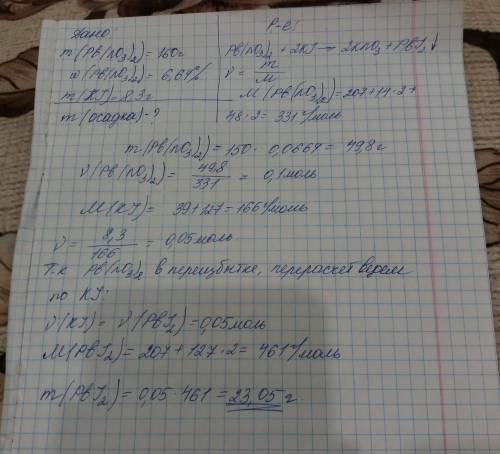 Дано:
m(Pb(NO3)2) = 160г
ω(Pb(NO3)2) = 6,64%
m(KI) = 8,3г
m(осадка) - ?
Р-е:
Pb(NO3)2 + 2KI → 2KNO3 + PbI2↓
ν = m/M
M(Pb(NO3)2) = 207+14·2+
48·2 = 331 г/моль
m(Pb(NO3)2) = 150 · 0,0664 = 49,8 г
ν(Pb(NO3)2) = 49,8/331 = 0,1 моль
M(KI) = 39+127 = 166 г/моль
ν = 8,3/166 = 0,05 моль
Т.к Pb(NO3)2 в переизбытке, перерасчет ведем
по KI:
ν(KI) = ν(PbI2) = 0,05 моль
M(PbI2) = 207 + 127 · 2 = 461 г/моль
m(PbI2) = 0,05 · 461 = 23,05 г.